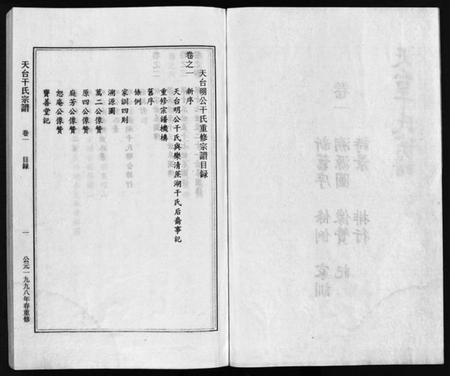 天台明公干氏重修宗譜目錄
卷之一
新序
天台明公干氏與樂清蒞湖干氏后裔事記
重修宗譜機構
舊序
條例
家訓四則
溯源圖
萬二公像贊
原四公像贊
庭芳公像贊
恕庵公像贊
寶善堂記
天台干氏宗譜
卷一
目錄
一
公元一九九八年春重修